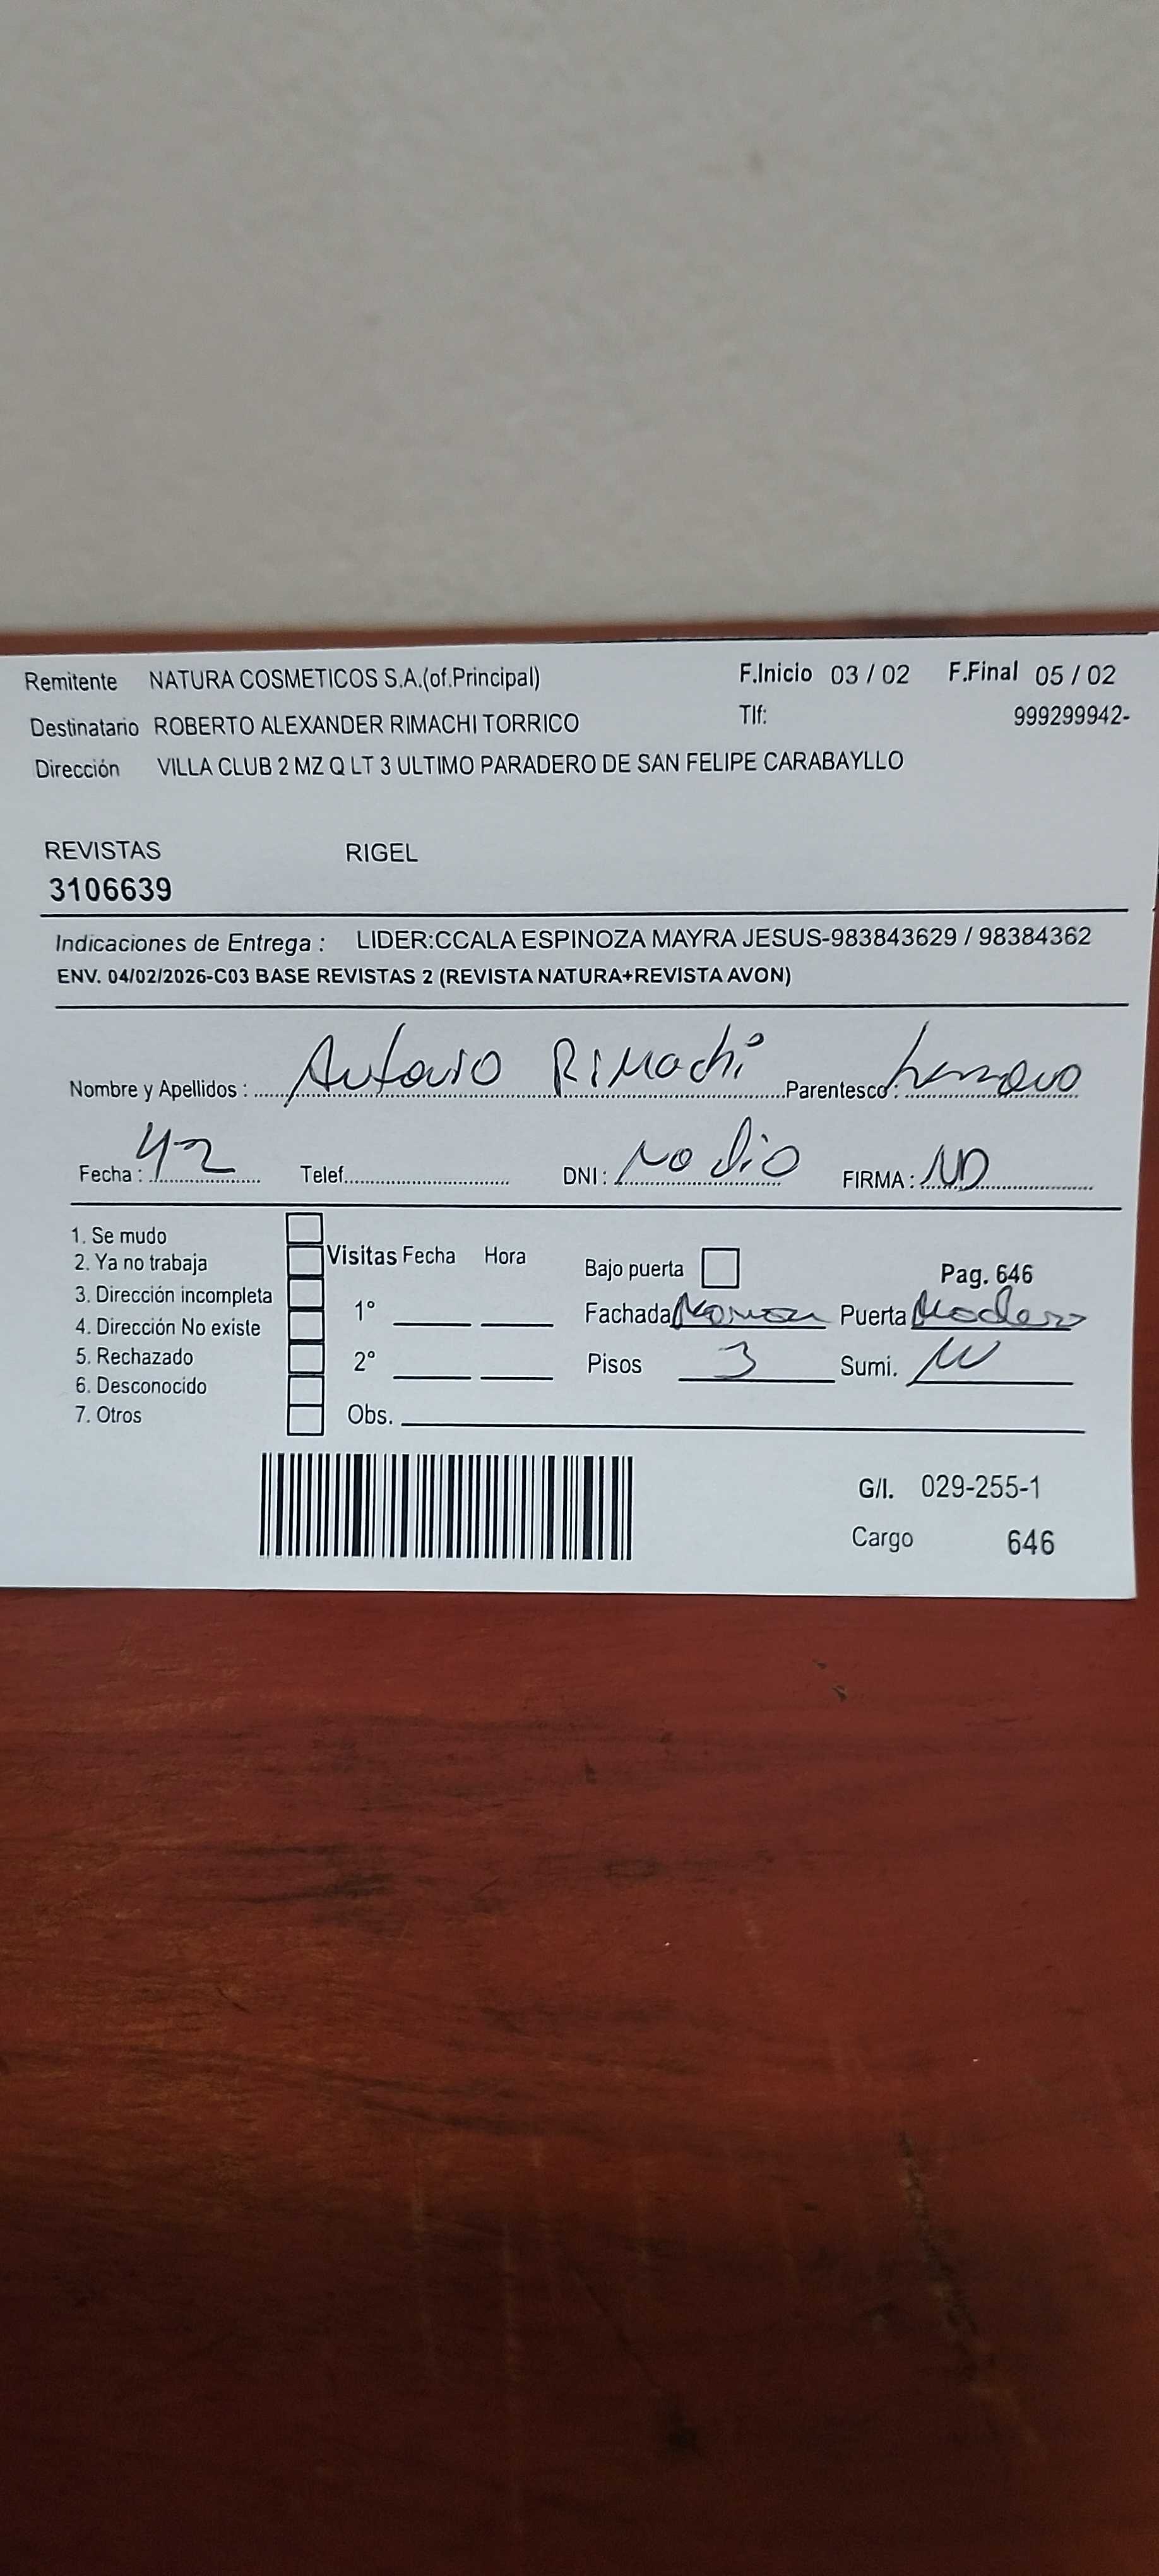 Remitente NATURA COSMETICOS S.A.(of.Principal) F.Inicio 03 / 02 F.Final 05 / 02
Destinatario ROBERTO ALEXANDER RIMACHI TORRICO Tlf: 999299942-
Dirección VILLA CLUB 2 MZ Q LT 3 ULTIMO PARADERO DE SAN FELIPE CARABAYLLO
REVISTAS RIGEL
3106639
Indicaciones de Entrega : LIDER:CCALA ESPINOZA MAYRA JESUS-983843629 / 98384362
ENV. 04/02/2026-C03 BASE REVISTAS 2 (REVISTA NATURA+REVISTA AVON)
Nombre y Apellidos : Antonio Rimachi Parentesco : hermano
Fecha : 4-2 Telef. DNI : No dio FIRMA : ND
1. Se mudo
2. Ya no trabaja Visitas Fecha Hora Bajo puerta Pag. 646
3. Dirección incompleta
4. Dirección No existe 1° Fachada Puerta Madera
5. Rechazado 2° Pisos 3 Sumi.
6. Desconocido
7. Otros Obs.
G/I. 029-255-1
Cargo 646